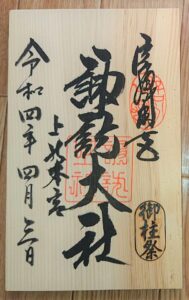 信濃國一宮
御柱祭
諏訪大社
上社本宮
令和四年四月三日